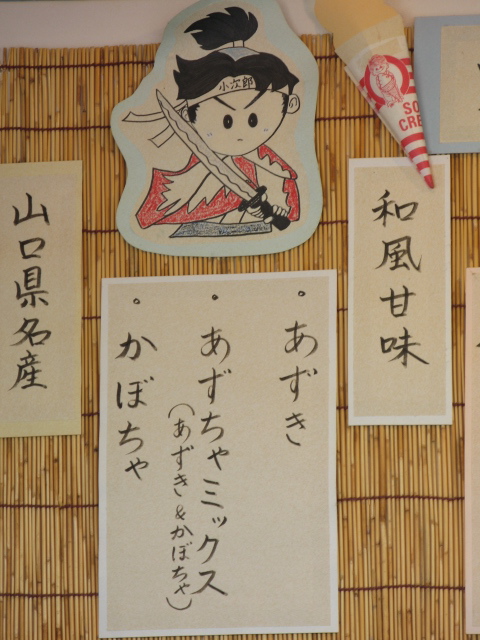 小次郎
SO
CRE
和風甘味
・あずき
・あずちゃミックス
(あずき&かぼちゃ)
・かぼちゃ
山口県名産